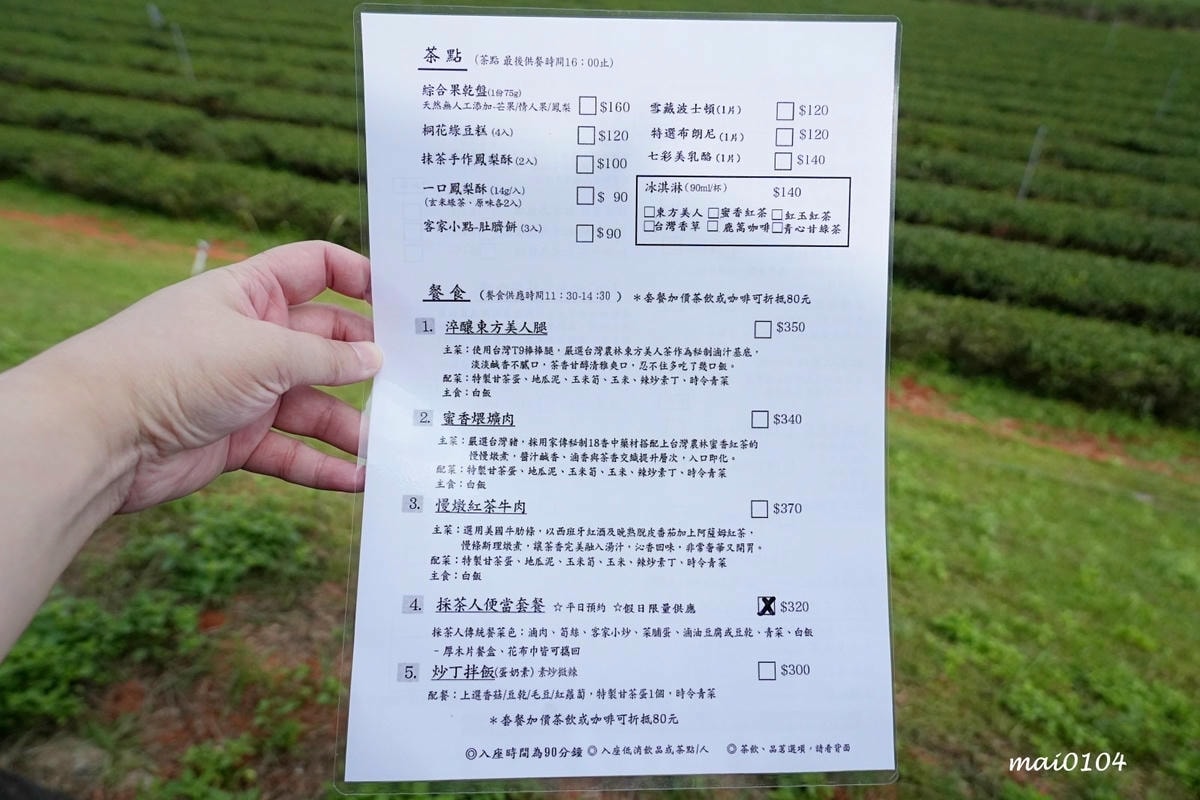 茶點 (茶點 最後供餐時間16:00止)
綜合果乾盤(1份75g)
天然無人工添加-芒果/情人果/鳳梨 $160
桐花綠豆糕 (4入) $120
抹茶手作鳳梨酥 (2入) $100
一口鳳梨酥 (14g/入) $ 90
(玄米綠茶、原味各2入)
客家小點-肚臍餅 (3入) $90
雪藏波士頓(1片) $120
特選布朗尼 (1片) $120
七彩美乳酪 (1片) $140
冰淇淋(90ml/杯) $140
東方美人 蜜香紅茶 紅玉紅茶
台灣香草 鹿篙咖啡 青心甘綠茶
餐食 (餐食供應時間11:30-14:30 ) *套餐加價茶飲或咖啡可折抵80元
1. 淬釀東方美人腿 $350
主菜:使用台灣T9棒棒腿,嚴選台灣農林東方美人茶作為秘制滷汁基底,
淡淡鹹香不膩口,茶香甘醇清雅爽口,忍不住多吃了幾口飯。
配菜:特製甘茶蛋、地瓜泥、玉米筍、玉米、辣炒素丁、時令青菜
主食:白飯
2. 蜜香煨爌肉 $340
主菜:嚴選台灣豬,採用家傳秘制18香中藥材搭配上台灣農林蜜香紅茶的
慢慢燉煮,醬汁鹹香、滷香與茶香交織提升層次,入口即化。
配菜:特製甘茶蛋、地瓜泥、玉米筍、玉米、辣炒素丁、時令青菜
主食:白飯
3. 慢燉紅茶牛肉 $370
主菜:選用美國牛肋條,以西班牙紅酒及晚熟脫皮番茄加上阿薩姆紅茶,
慢條斯理燉煮,讓茶香完美融入湯汁,沁香回味,非常奢華又開胃。
配菜:特製甘茶蛋、地瓜泥、玉米筍、玉米、辣炒素丁、時令青菜
主食:白飯
4. 採茶人便當套餐 ☆平日預約 ☆假日限量供應 $320
採茶人傳統餐菜色:滷肉、筍絲、客家小炒、菜脯蛋、滷油豆腐或豆乾、青菜、白飯
- 厚木片餐盒、花布巾皆可攜回
5. 炒丁拌飯(蛋奶素) 素炒微辣 $300
配餐:上選香菇/豆乾/毛豆/紅蘿蔔,特製甘茶蛋1個,時令青菜
*套餐加價茶飲或咖啡可折抵80元
◎入座時間為90分鐘 ◎入座低消飲品或茶點/人 ◎茶飲、品茗選項,請看背面
mai0104